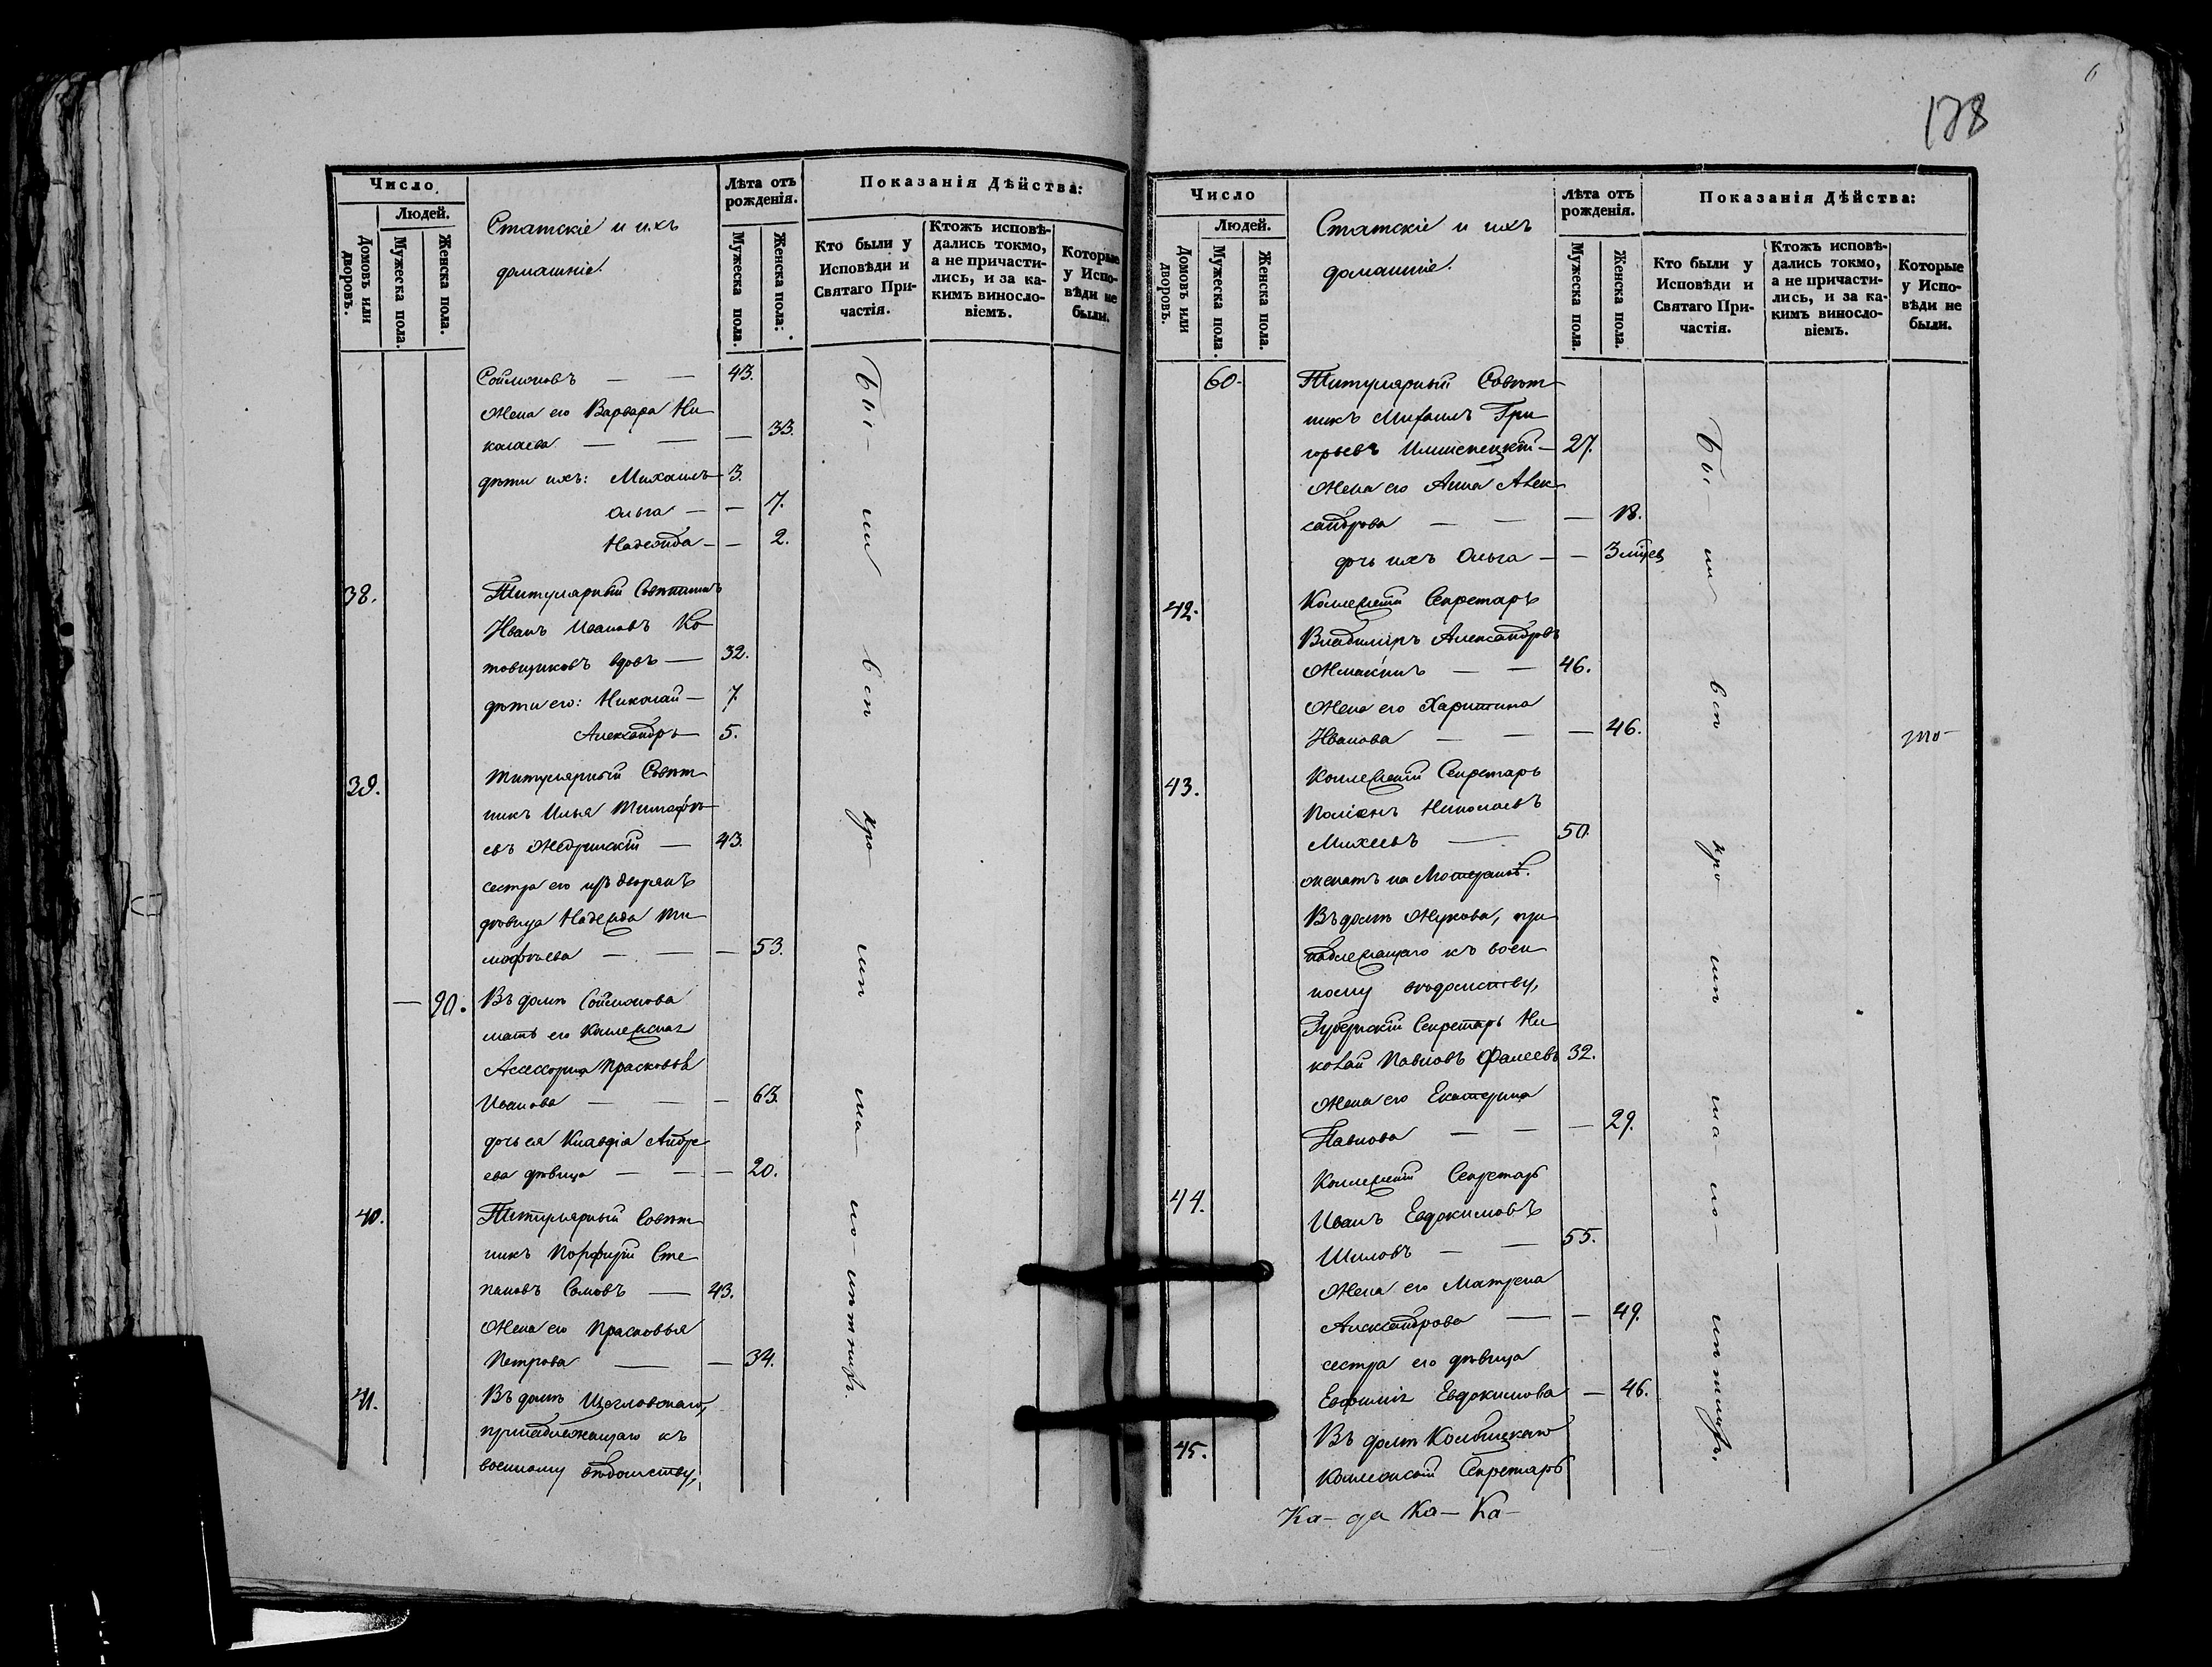 Число
Людей.
Домовъ или дворовъ.
Мужеска пола.
Женска пола.
Статскіе и ихъ
домашніе.
Лѣта отъ рожденія.
Мужеска пола.
Женска пола.
Показанія Дѣйства:
Кто были у Исповѣди и Святаго Причастія.
Ктожъ исповѣдались токмо, а не причастились, и за какимъ винословіемъ.
Которые у Исповѣди не были.
Соймоновъ — — 43.
Жена его Варвара Ни
колаева — — — 33.
дѣти ихъ: Михаилъ 3.
Ольга — — 7.
Надежда — — 2.
38. Титулярный Совѣтникъ
Иванъ Ивановъ Ко
товщиковъ вдовъ — 32.
дѣти его: Николай — 7
Александръ — 5.
39. Титулярный Совѣт
никъ Илья Тимофѣ
евъ Жедринскій — 43.
сестра его изъ дворянъ
дѣвица Надежда Ти
мофѣева — — — 53.
— 90. Въ домѣ Соймонова
мать его Коллежская
Ассесорша Прасковья
Иванова — — — 63.
дочь ея Клавдія Андре
ева дѣвица — — — 20.
40. Титулярный Совѣт
никъ Порфирій Сте
пановъ Сомовъ — 43.
Жена его Прасковья
Петрова — — 34.
41. Въ домѣ Щегловскаго,
принадлежащаго къ
военному вѣдомству,
Бы-
ли
всѣ
кро-
мѣ
ма-
ло-
лѣтнихъ.
178
Число
Людей.
Домовъ или дворовъ.
Мужеска пола.
Женска пола.
Статскіе и ихъ
домашніе.
Лѣта отъ рожденія.
Мужеска пола.
Женска пола.
Показанія Дѣйства:
Кто были у Исповѣди и Святаго Причастія.
Ктожъ исповѣдались токмо, а не причастились, и за какимъ винословіемъ.
Которые у Исповѣди не были.
60. Титулярный Совѣт
никъ Михаилъ Гри
горьевъ 27.
Жена его Анна Алек
сандрова — — — 18.
дочь ихъ Ольга — — 3 мѣсяц
42. Коллежскій Секретарь
Владиміръ Александровъ
Жмакинъ — — 46.
Жена его Харитина
Иванова — — — 46.
43. Коллежскій Секретарь
Николаевъ
Михеевъ — 50.
женатъ на Лютеранкѣ.
Въ домѣ Жукова, при
надлежащаго къ воен
ному вѣдомству,
Губернскій Секретарь Ни
колай Павловъ Фалеевъ 32.
Жена его Екатерина
Павлова — — — 29.
44. Коллежскій Секретарь
Иванъ Евдокимовъ
Шиловъ — — 55.
Жена его Матрена
Александрова — — 49.
сестра его дѣвица
Евфимія Евдокимова — 46.
45. Въ домѣ
Коллежскій Секретарь
Бы-
ли
всѣ
кро
мѣ
ма-
ло-
лѣтнихъ.